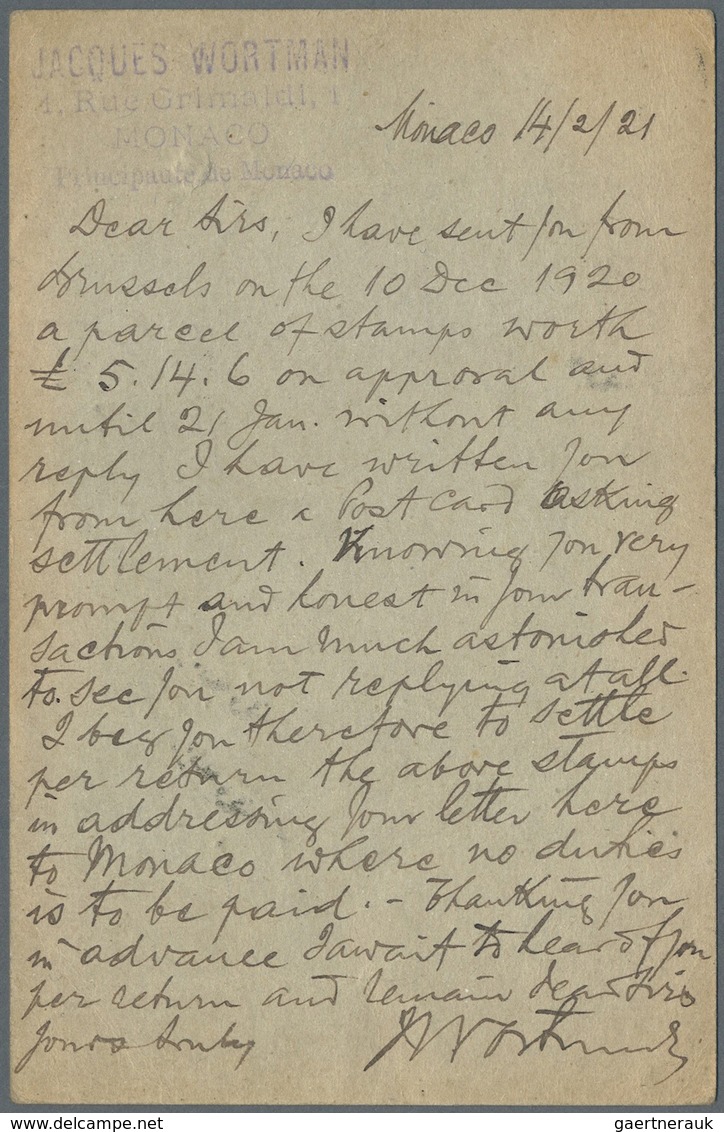 JACQUES WORTMAN
4, Rue Grimaldi, 4
MONACO
Principauté de Monaco
Monaco 14/2/21
Dear Sirs, I have sent you from
Brussels on the 10 Dec 1920
a parcel of stamps worth
£ 5.14.6 on approval and
until 21 Jan. without any
reply I have written you
from here a Post Card asking
settlement. Knowing you very
prompt and honest in your tran-
sactions I am much astonished
to see you not replying at all.
I beg you therefore to settle
per return the above stamps
in addressing your letter here
to Monaco where no duties
is to be paid. - Thanking you
in advance I await to hear of you
per return and remain dear Sirs
yours truly JWortman
gaertnerauk @ delcampe.net